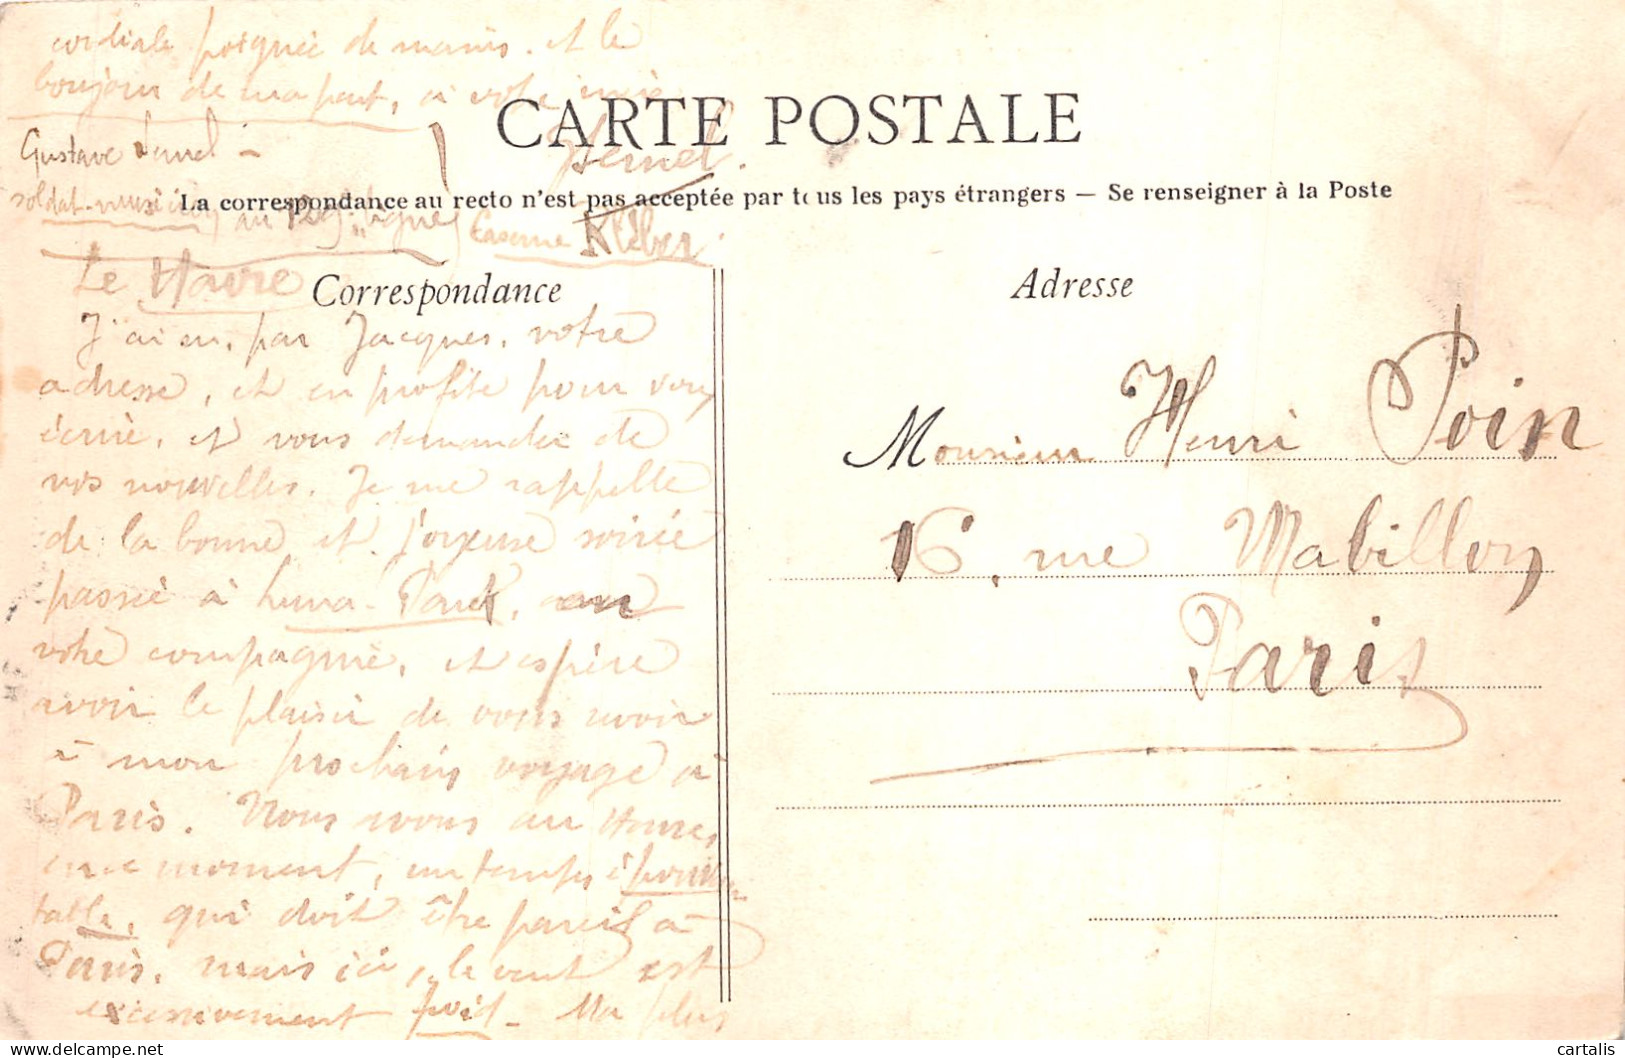 cordiale poignée de mains. et le
bonjour de ma part, à votre
CARTE POSTALE
Gustave
soldat-musicien au 129e ligne Caserne Kléber.
La correspondance au recto n'est pas acceptée par tous les pays étrangers — Se renseigner à la Poste
Le Havre
Correspondance
Adresse
J'ai eu, par Jacques, votre
adresse, et en profite pour vous
écrire, et vous demander de
vos nouvelles. Je me rappelle
de la bonne et joyeuse soirée
passée à Luna-Park, en
votre compagnie, et espère
avoir le plaisir de vous revoir
à mon prochain voyage à
Paris. Nous avons au Havre,
en ce moment, un temps épouvan
table, qui doit être pareil à
Paris, mais ici, le vent est
excessivement froid. Ma plus
Monsieur Henri Poin
16, rue Mabillon
Paris
cartalis